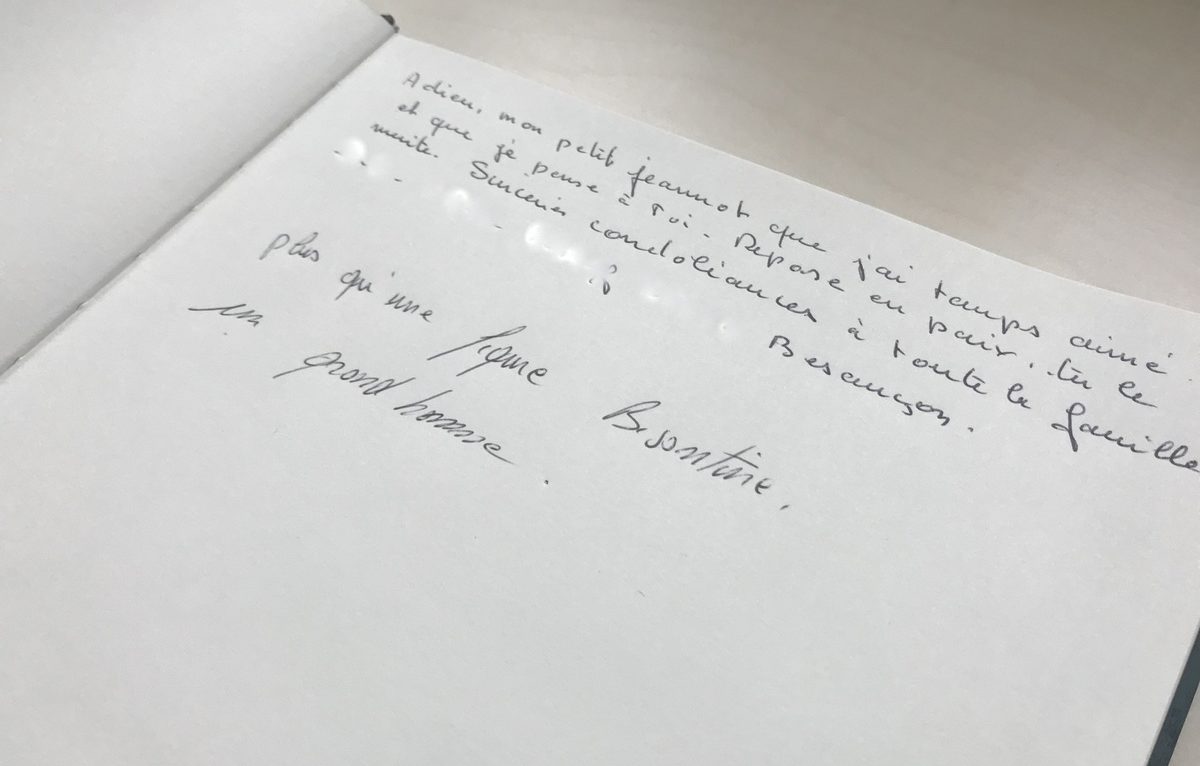 Adieu, mon petit jeannot que j'ai temps aimé
et que je pense à toi. Repose en paix. tu le
merite. Sinceries condoliances à toute la famille
Besançon.
plus qu'une figure Bisontine,
un grand homme.